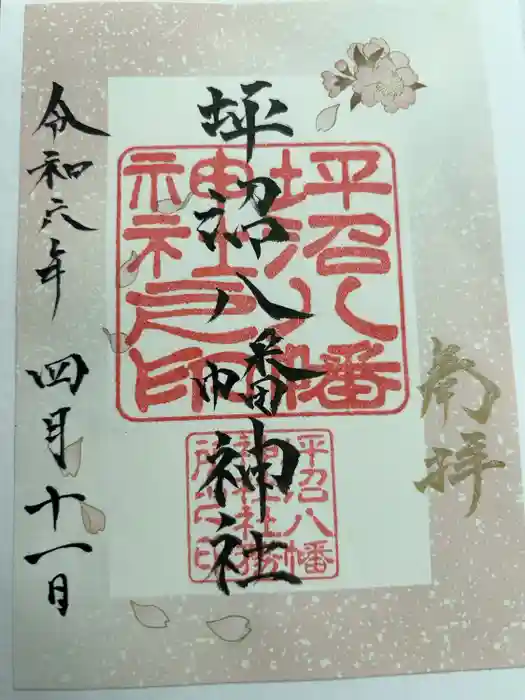 奉拝
坪沼八幡神社
坪沼八幡
神社之印
坪沼八幡
神社社務
所之印
令和六年 四月十一日